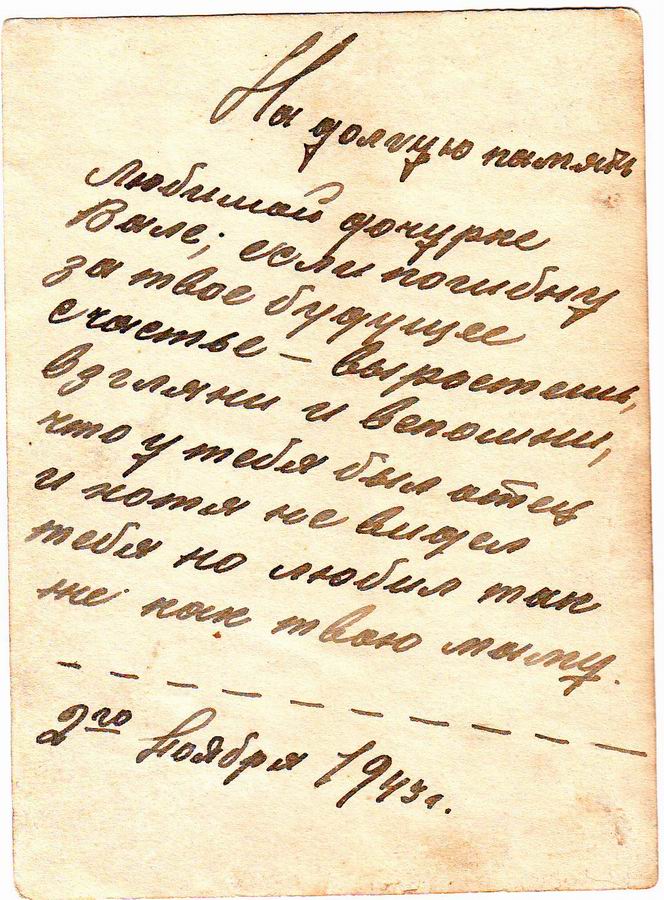 На долгую память
любимой дочурке
Вале; если погибну
за твое будущее
счастье – выростешь,
взгляни и вспомни,
что у тебя был отец
и хотя не видел
тебя но любил так
же как твою маму.
2го Ноября 1943г.